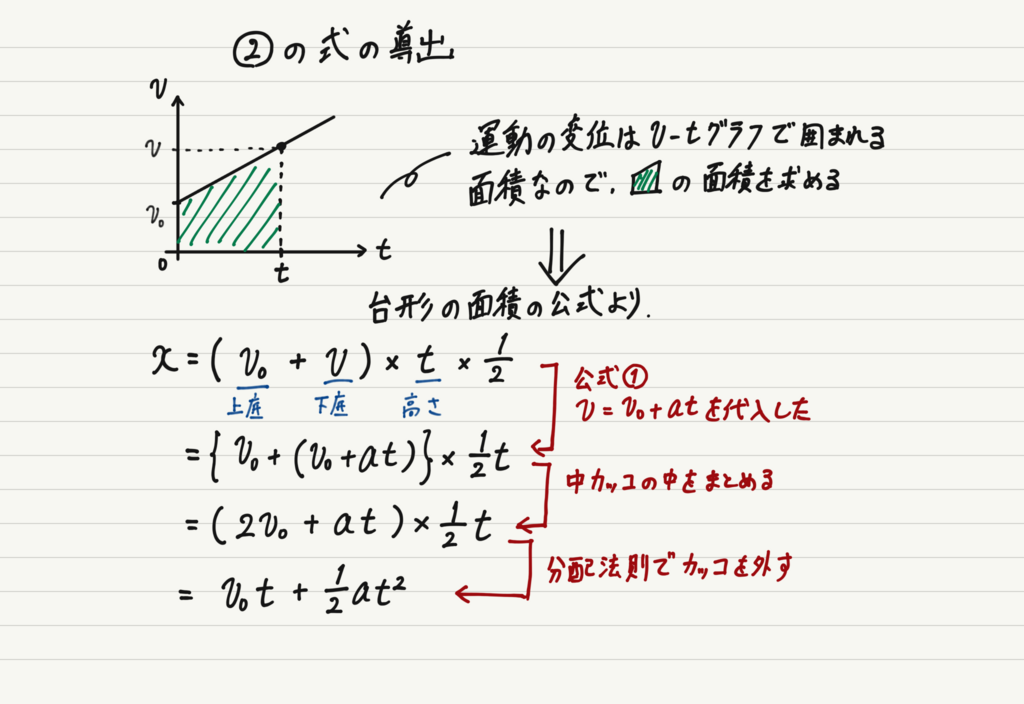 ②の式の導出
v
v
v₀
0
t
t
運動の変位はv-tグラフで囲まれる
面積なので, の面積を求める
台形の面積の公式より.
x = (v₀ + v) × t × 1/2
上底 下底 高さ
公式①
v = v₀ + at を代入した
= {v₀ + (v₀ + at)} × 1/2 t
中カッコの中をまとめる
= (2v₀ + at) × 1/2 t
分配法則でカッコを外す
= v₀t + 1/2 at²